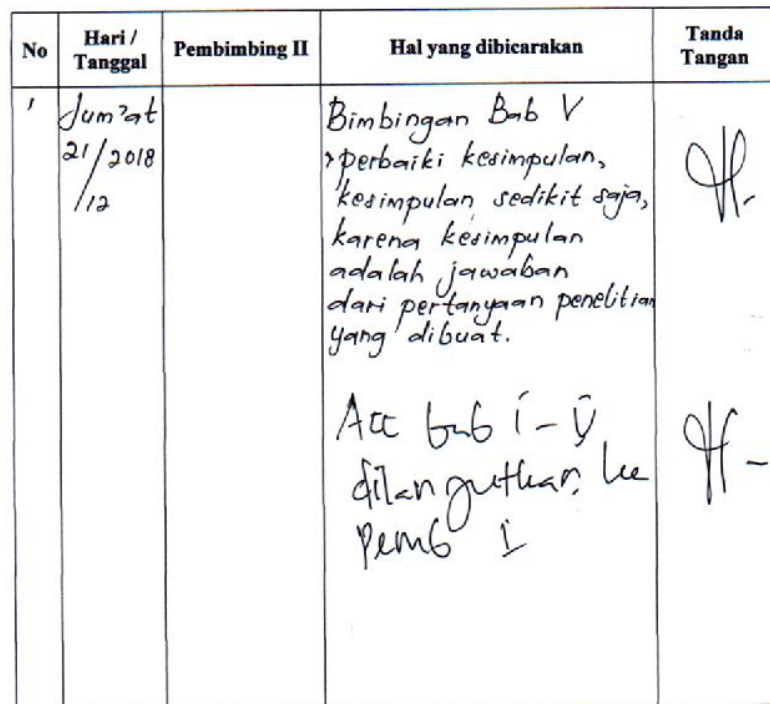 No
Hari / Tanggal
Pembimbing II
Hal yang dibicarakan
Tanda Tangan
1
Jum'at
21/2018
/12
Bimbingan Bab V
> perbaiki kesimpulan,
kesimpulan sedikit saja,
karena kesimpulan
adalah jawaban
dari pertanyaan penelitian
yang dibuat.
Acc bab I - V
dilanjutkan ke
Pemb I